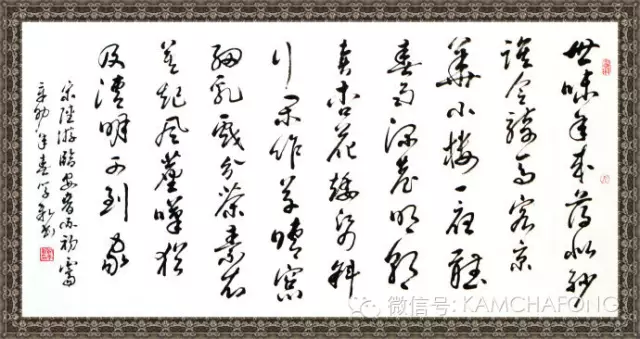 世味年來薄似紗
誰令騎馬客京
華小樓一夜聽
春雨深巷明朝
賣杏花矮紙斜
行閒作草晴窗
細乳戲分茶素衣
莫起風塵嘆猶
及清明可到家
宋陸游臨安春雨初霽
辛卯年春
微信号: KAMCHAFONG